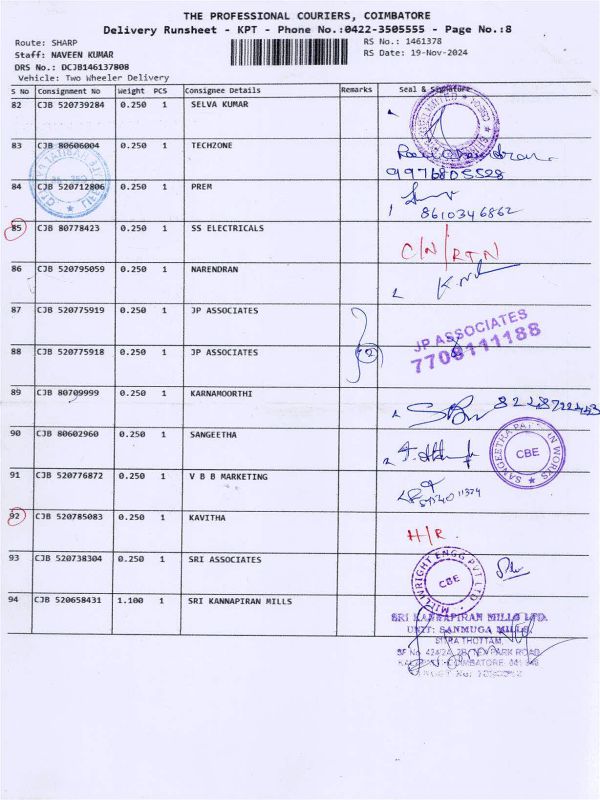 THE PROFESSIONAL COURIERS, COIMBATORE
Delivery Runsheet - KPT - Phone No.:0422-3505555 - Page No.:8
Route: SHARP RS No.: 1461378
Staff: NAVEEN KUMAR RS Date: 19-Nov-2024
DRS No.: DCJB146137808
Vehicle: Two Wheeler Delivery
S No Consignment No Weight PCS Consignee Details Remarks Seal & Signature
82 CJB 520739284 0.250 1 SELVA KUMAR
83 CJB 80606004 0.250 1 TECHZONE
9976805528
84 CJB 520712806 0.250 1 PREM
8610346862
85 CJB 80778423 0.250 1 SS ELECTRICALS C/N/RTN
86 CJB 520795059 0.250 1 NARENDRAN
87 CJB 520775919 0.250 1 JP ASSOCIATES JP ASSOCIATES
88 CJB 520775918 0.250 1 JP ASSOCIATES 2
89 CJB 80709999 0.250 1 KARNAMOORTHI
90 CJB 80602960 0.250 1 SANGEETHA CBE
91 CJB 520776872 0.250 1 V B B MARKETING
92 CJB 520785083 0.250 1 KAVITHA H/R.
93 CJB 520738304 0.250 1 SRI ASSOCIATES MILLWRIGHT ENGG PVT LTD CBE
94 CJB 520658431 1.100 1 SRI KANNAPIRAN MILLS
SRI KANNAPIRAN MILLS LTD.
UNIT: SANMUGA MILLS,